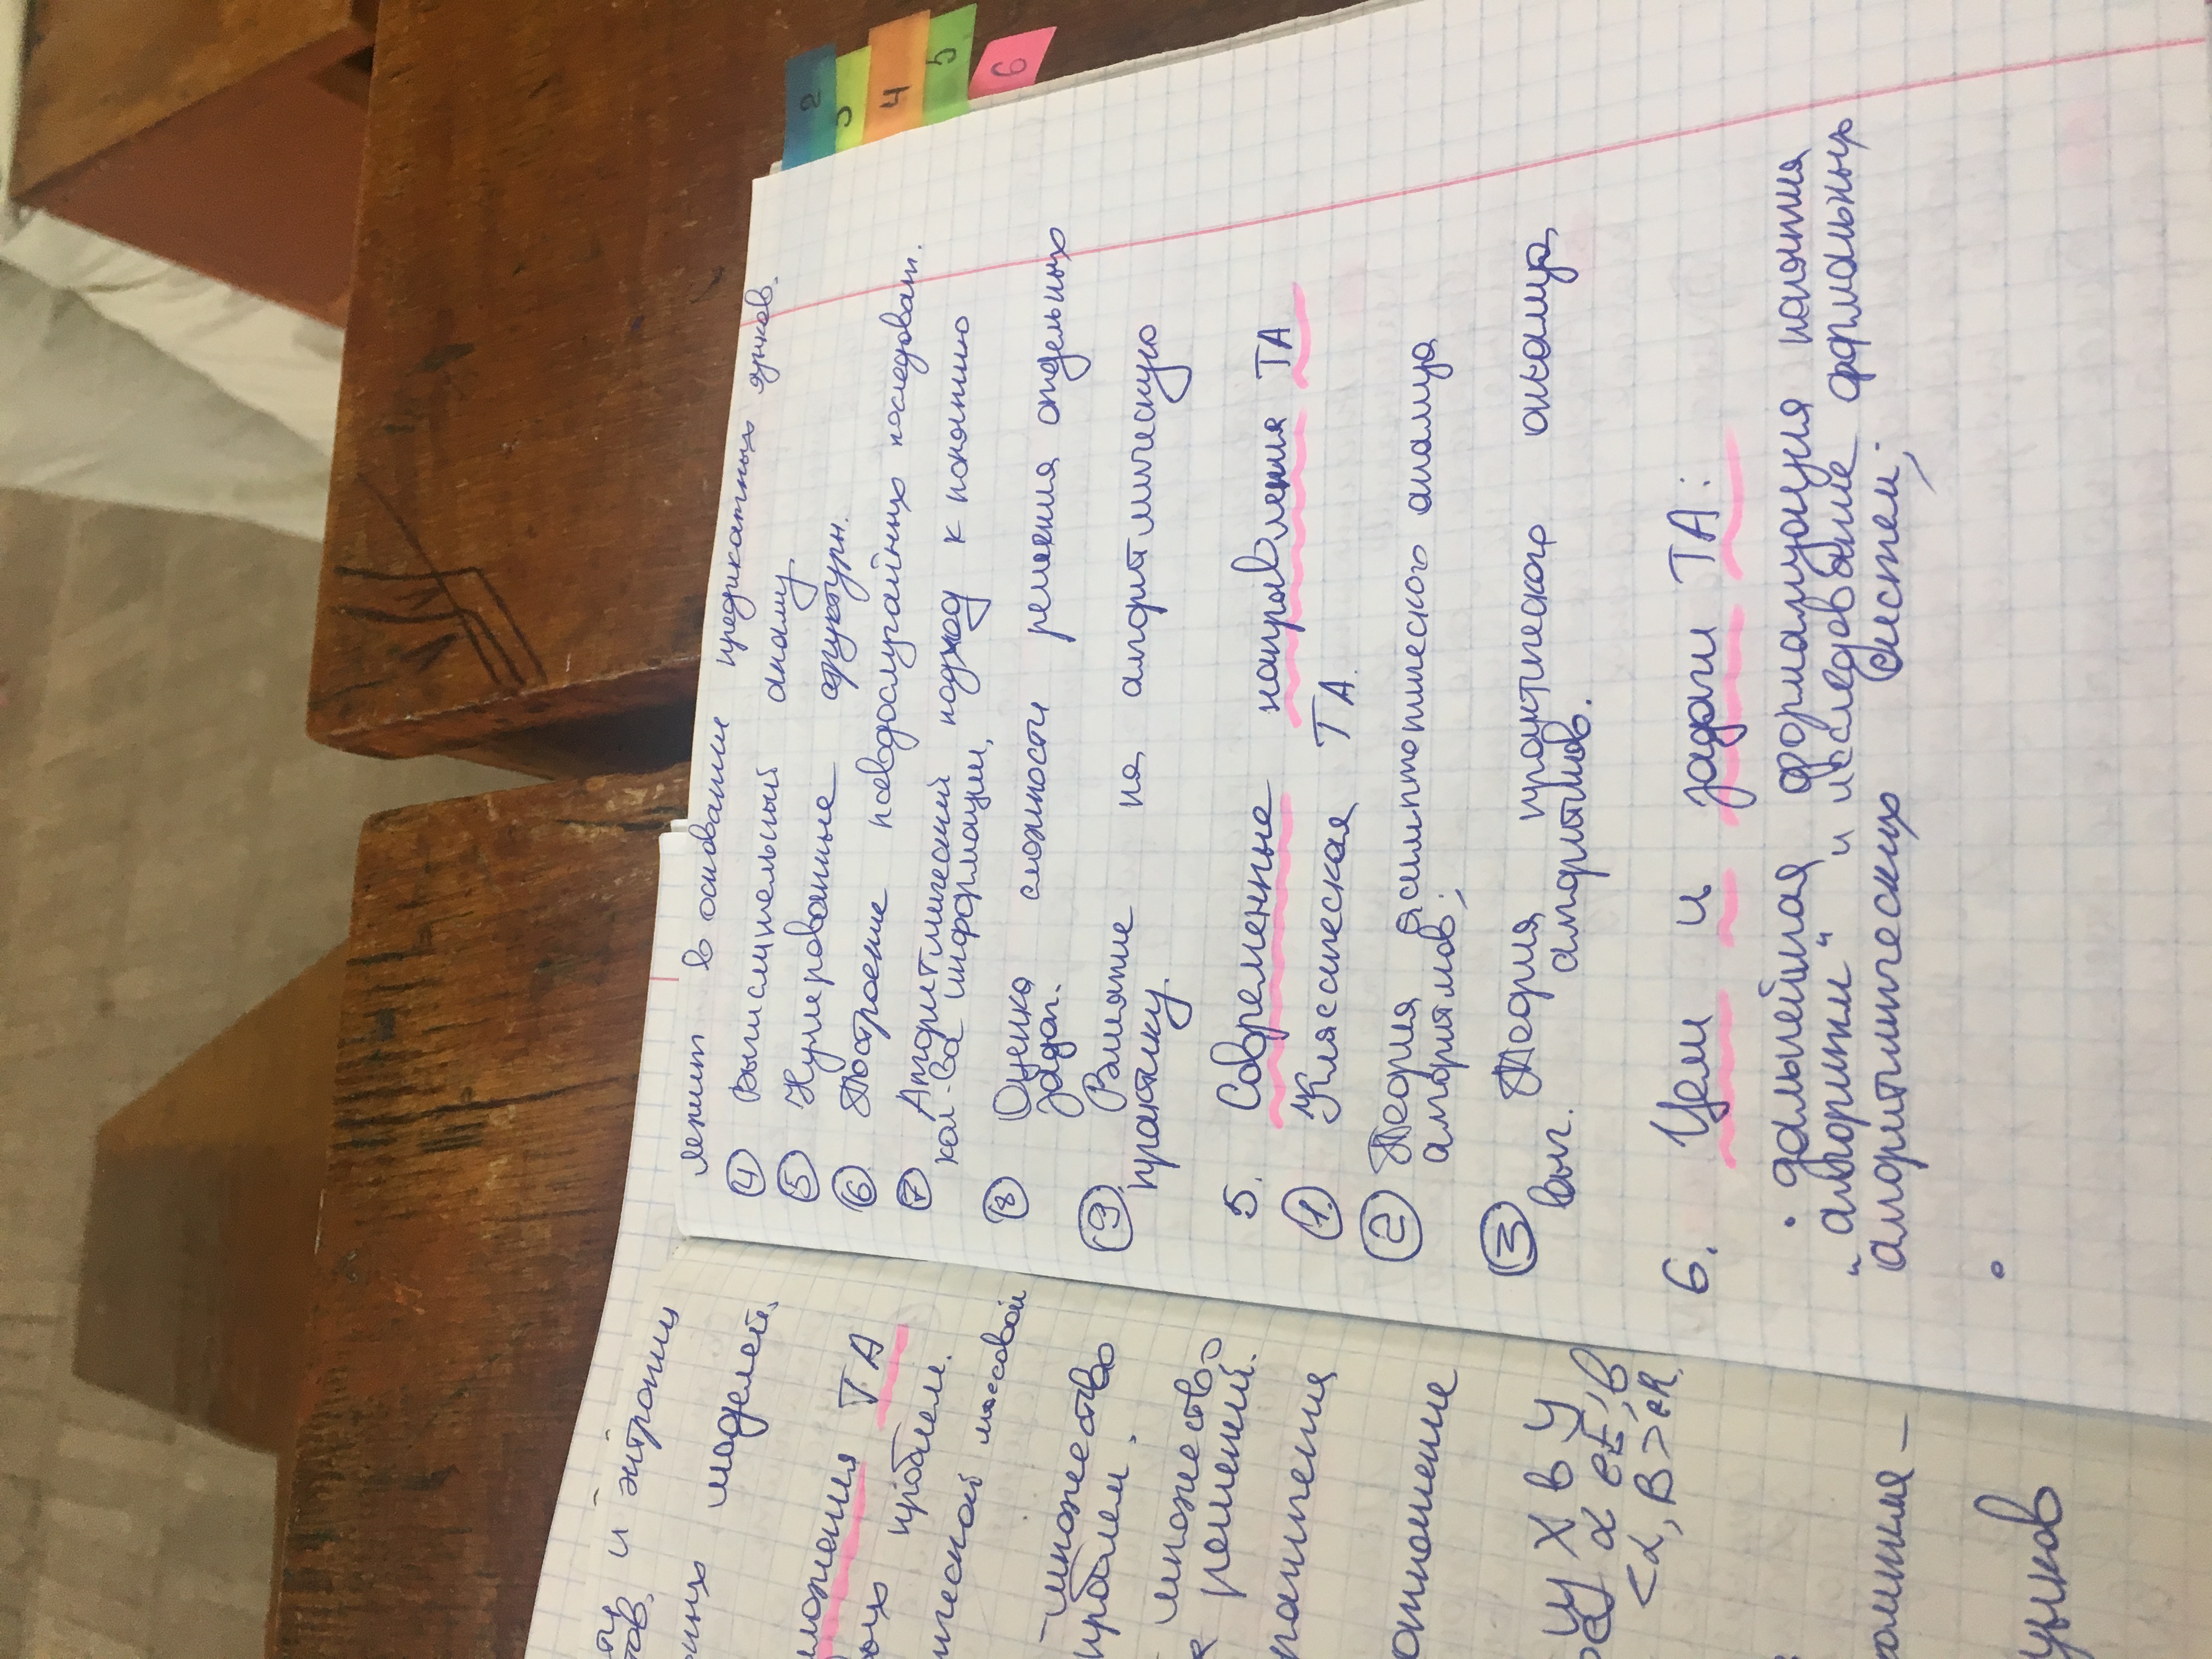 и энтропии
тов.
нных моделей.
ложения ТА
ых проблем.
ической массовой
- множество
проблем.
- множество
решений.
раничения
отношение
X в Y
α ∈ E', β
<α, β> ∈ R.
лежит в основании предикатных языков.
④ Вычислительный анализ
⑤ Нумерованные структуры.
⑥ Построение псевдослучайных последоват.
⑦ Алгоритмический подход к понятию
кол-ва информации.
⑧ Оценка сложности решения отдельных
задач.
⑨ Влияние на алгоритмическую
практику.
5. Современные направления ТА
① Классическая ТА.
② Теория асимптотического анализа
алгоритмов;
③ Теория практического анализа
выч. алгоритмов.
6. Цели и задачи ТА:
• дальнейшая формализация понятия
„алгоритм“ и исследование формальных
алгоритмических систем;
•
2
3
4
5
6